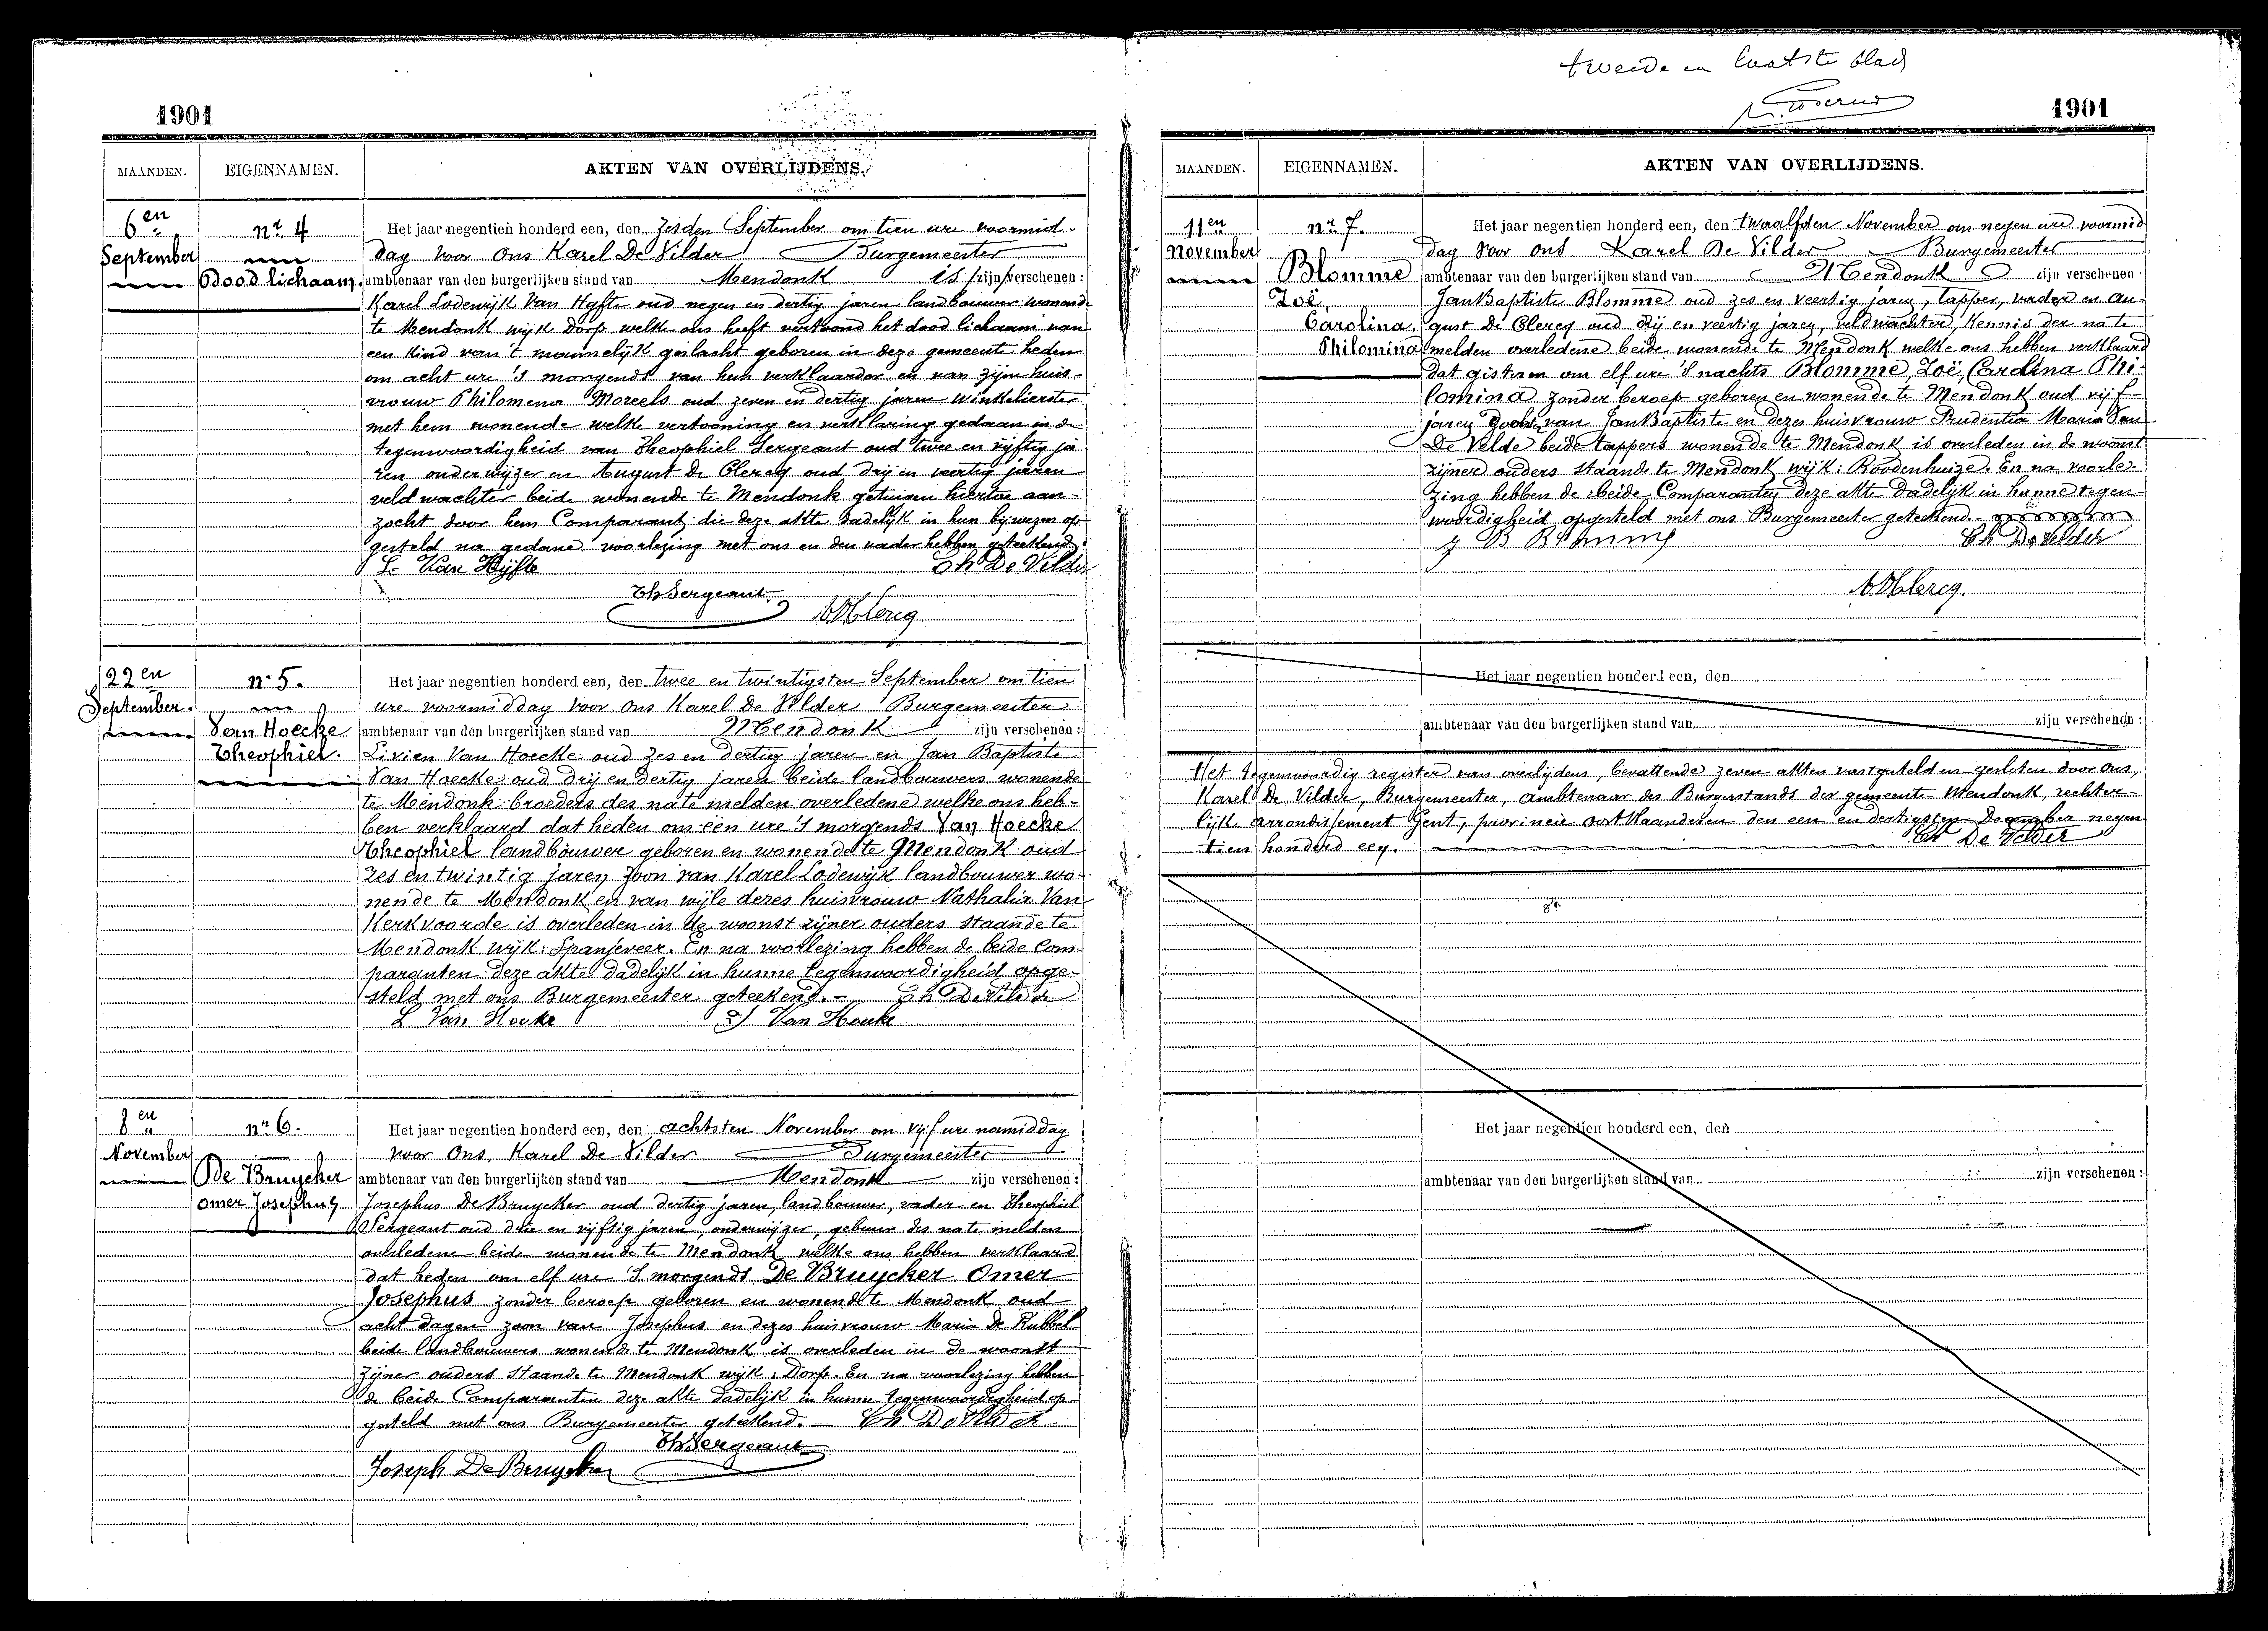 1901
MAANDEN. EIGENNAMEN. AKTEN VAN OVERLIJDENS.
6en nr. 4 Het jaar negentien honderd een, den zesden September om tien ure voormid-
September dag voor Ons Karel De Vilder Burgemeester
Dood lichaam ambtenaar van den burgerlijken stand van Mendonk is /zijn/ verschenen:
Karel Lodewijk Van Hyfte oud negen en dertig jaren landbouwer wonende
te Mendonk wijk Dorp welke ons heeft vertoond het dood lichaam van
een kind van 't mannelijk geslacht geboren in deze gemeente heden
om acht ure 's morgends van hem verklaarder en van zijn huis-
vrouw Philomena Moreels oud zeven en dertig jaren winkelierster
met hem wonende welke vertooning en verklaring gedaan in de
tegenwoordigheid van Theophiel Sergeant oud twee en vijftig ja
ren onderwijzer en August De Clercq oud drij en veertig jaren
veldwachter beide wonende te Mendonk getuigen hiertoe aan-
zocht door hem Comparant die deze akte dadelijk in hun bijwezen op
gesteld na gedane voorlezing met ons en den vader hebben geteekend.
L. Van Hyfte Ch De Vilder
Th Sergeant ADClercq
22en n. 5. Het jaar negentien honderd een, den twee en twintigsten September om tien
September. ure voormiddag voor ons Karel De Vilder Burgemeester
Van Hoecke ambtenaar van den burgerlijken stand van Mendonk zijn verschenen:
Theophiel. Livien Van Hoecke oud zes en dertig jaren en Jan Baptiste
Van Hoecke oud drij en dertig jaren beide landbouwers wonende
te Mendonk broeders des na te melden overledene welke ons heb-
ben verklaard dat heden om een ure 's morgends Van Hoecke
Theophiel landbouwer geboren en wonende te Mendonk oud
zes en twintig jaren zoon van Karel Lodewijk landbouwer wo-
nende te Mendonk en van wijle dezes huisvrouw Nathalia Van
Kerkvoorde is overleden in de woonst zijner ouders staande te
Mendonk wijk: Spanjeveer. En na voorlezing hebben de beide Com-
paranten deze akte dadelijk in hunne tegenwoordigheid opge-
steld met ons Burgemeester geteekend.- Ch De Vilder
L Van Hoecke Van Hoecke
8en nr 6. Het jaar negentien honderd een, den achtsten November om vijf ure namiddag
November voor Ons, Karel De Vilder Burgemeester
De Bruycker ambtenaar van den burgerlijken stand van Mendonk zijn verschenen:
Omer Josephus Josephus De Bruycker oud dertig jaren, landbouwer, vader en Theophiel
Sergeant oud drie en vijftig jaren, onderwijzer, gebuur des na te melden
overledene beide wonende te Mendonk welke ons hebben verklaard
dat heden om elf ure 's morgends De Bruycker Omer
Josephus zonder beroep geboren en wonende te Mendonk oud
acht dagen zoon van Josephus en dezes huisvrouw Maria De Kubbel
beide landbouwers wonende te Mendonk is overleden in de woonst
zijner ouders staande te Mendonk wijk: Dorp. En na voorlezing hebben
de beide Comparanten deze akte dadelijk in hunne tegenwoordigheid op
gesteld met ons Burgemeester geteekend.- Ch De Vilder
Th Sergeant
Joseph De Bruycker
tweede en laatste blad
1901
MAANDEN. EIGENNAMEN. AKTEN VAN OVERLIJDENS.
11en nr 7. Het jaar negentien honderd een, den twaalfden November om negen ure voormid
November dag voor ons Karel De Vilder Burgemeester
Blomme ambtenaar van den burgerlijken stand van Mendonk zijn verschenen:
Zoë Jan Baptiste Blomme oud zes en veertig jaren, tapper, vader en Au-
Carolina, gust De Clercq oud drij en veertig jaren, veldwachter, kennis der na te
Philomina melden overledene beide wonende te Mendonk welke ons hebben verklaard
dat gisteren om elf ure 's nachts Blomme, Zoë, Carolina Phi-
lomina zonder beroep geboren en wonende te Mendonk oud vijf
jaren dochter van Jan Baptiste en dezes huisvrouw Prudentia Maria Van
De Velde beide tappers wonende te Mendonk is overleden in de woonst
zijner ouders staande te Mendonk wijk: Roodenhuize. En na voorle-
zing hebben de beide Comparanten deze akte dadelijk in hunne tegen-
woordigheid opgesteld met ons Burgemeester geteekend.
J B Blomme Ch De Vilder
ADClercq.
Het jaar negentien honderd een, den
ambtenaar van den burgerlijken stand van zijn verschenen:
Het tegenwoordig register van overlijdens, bevattende zeven akten vastgesteld en gesloten door ons,
Karel De Vilder, Burgemeester, ambtenaar des Burgerstands der gemeente Mendonk, rechter-
lijk arrondissement Gent, provincie oostVlaanderen den een en dertigsten December negen
tien honderd een. Ch De Vilder
Het jaar negentien honderd een, den
ambtenaar van den burgerlijken stand van zijn verschenen: